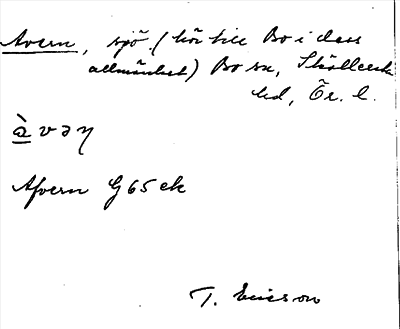 Avern, sjö (hör till Bo i dess
allmänhet) Bo sn, Sköllersta
hd, Ör. l.
àvəɳ
Afvern G 65 ek
T. Ericson